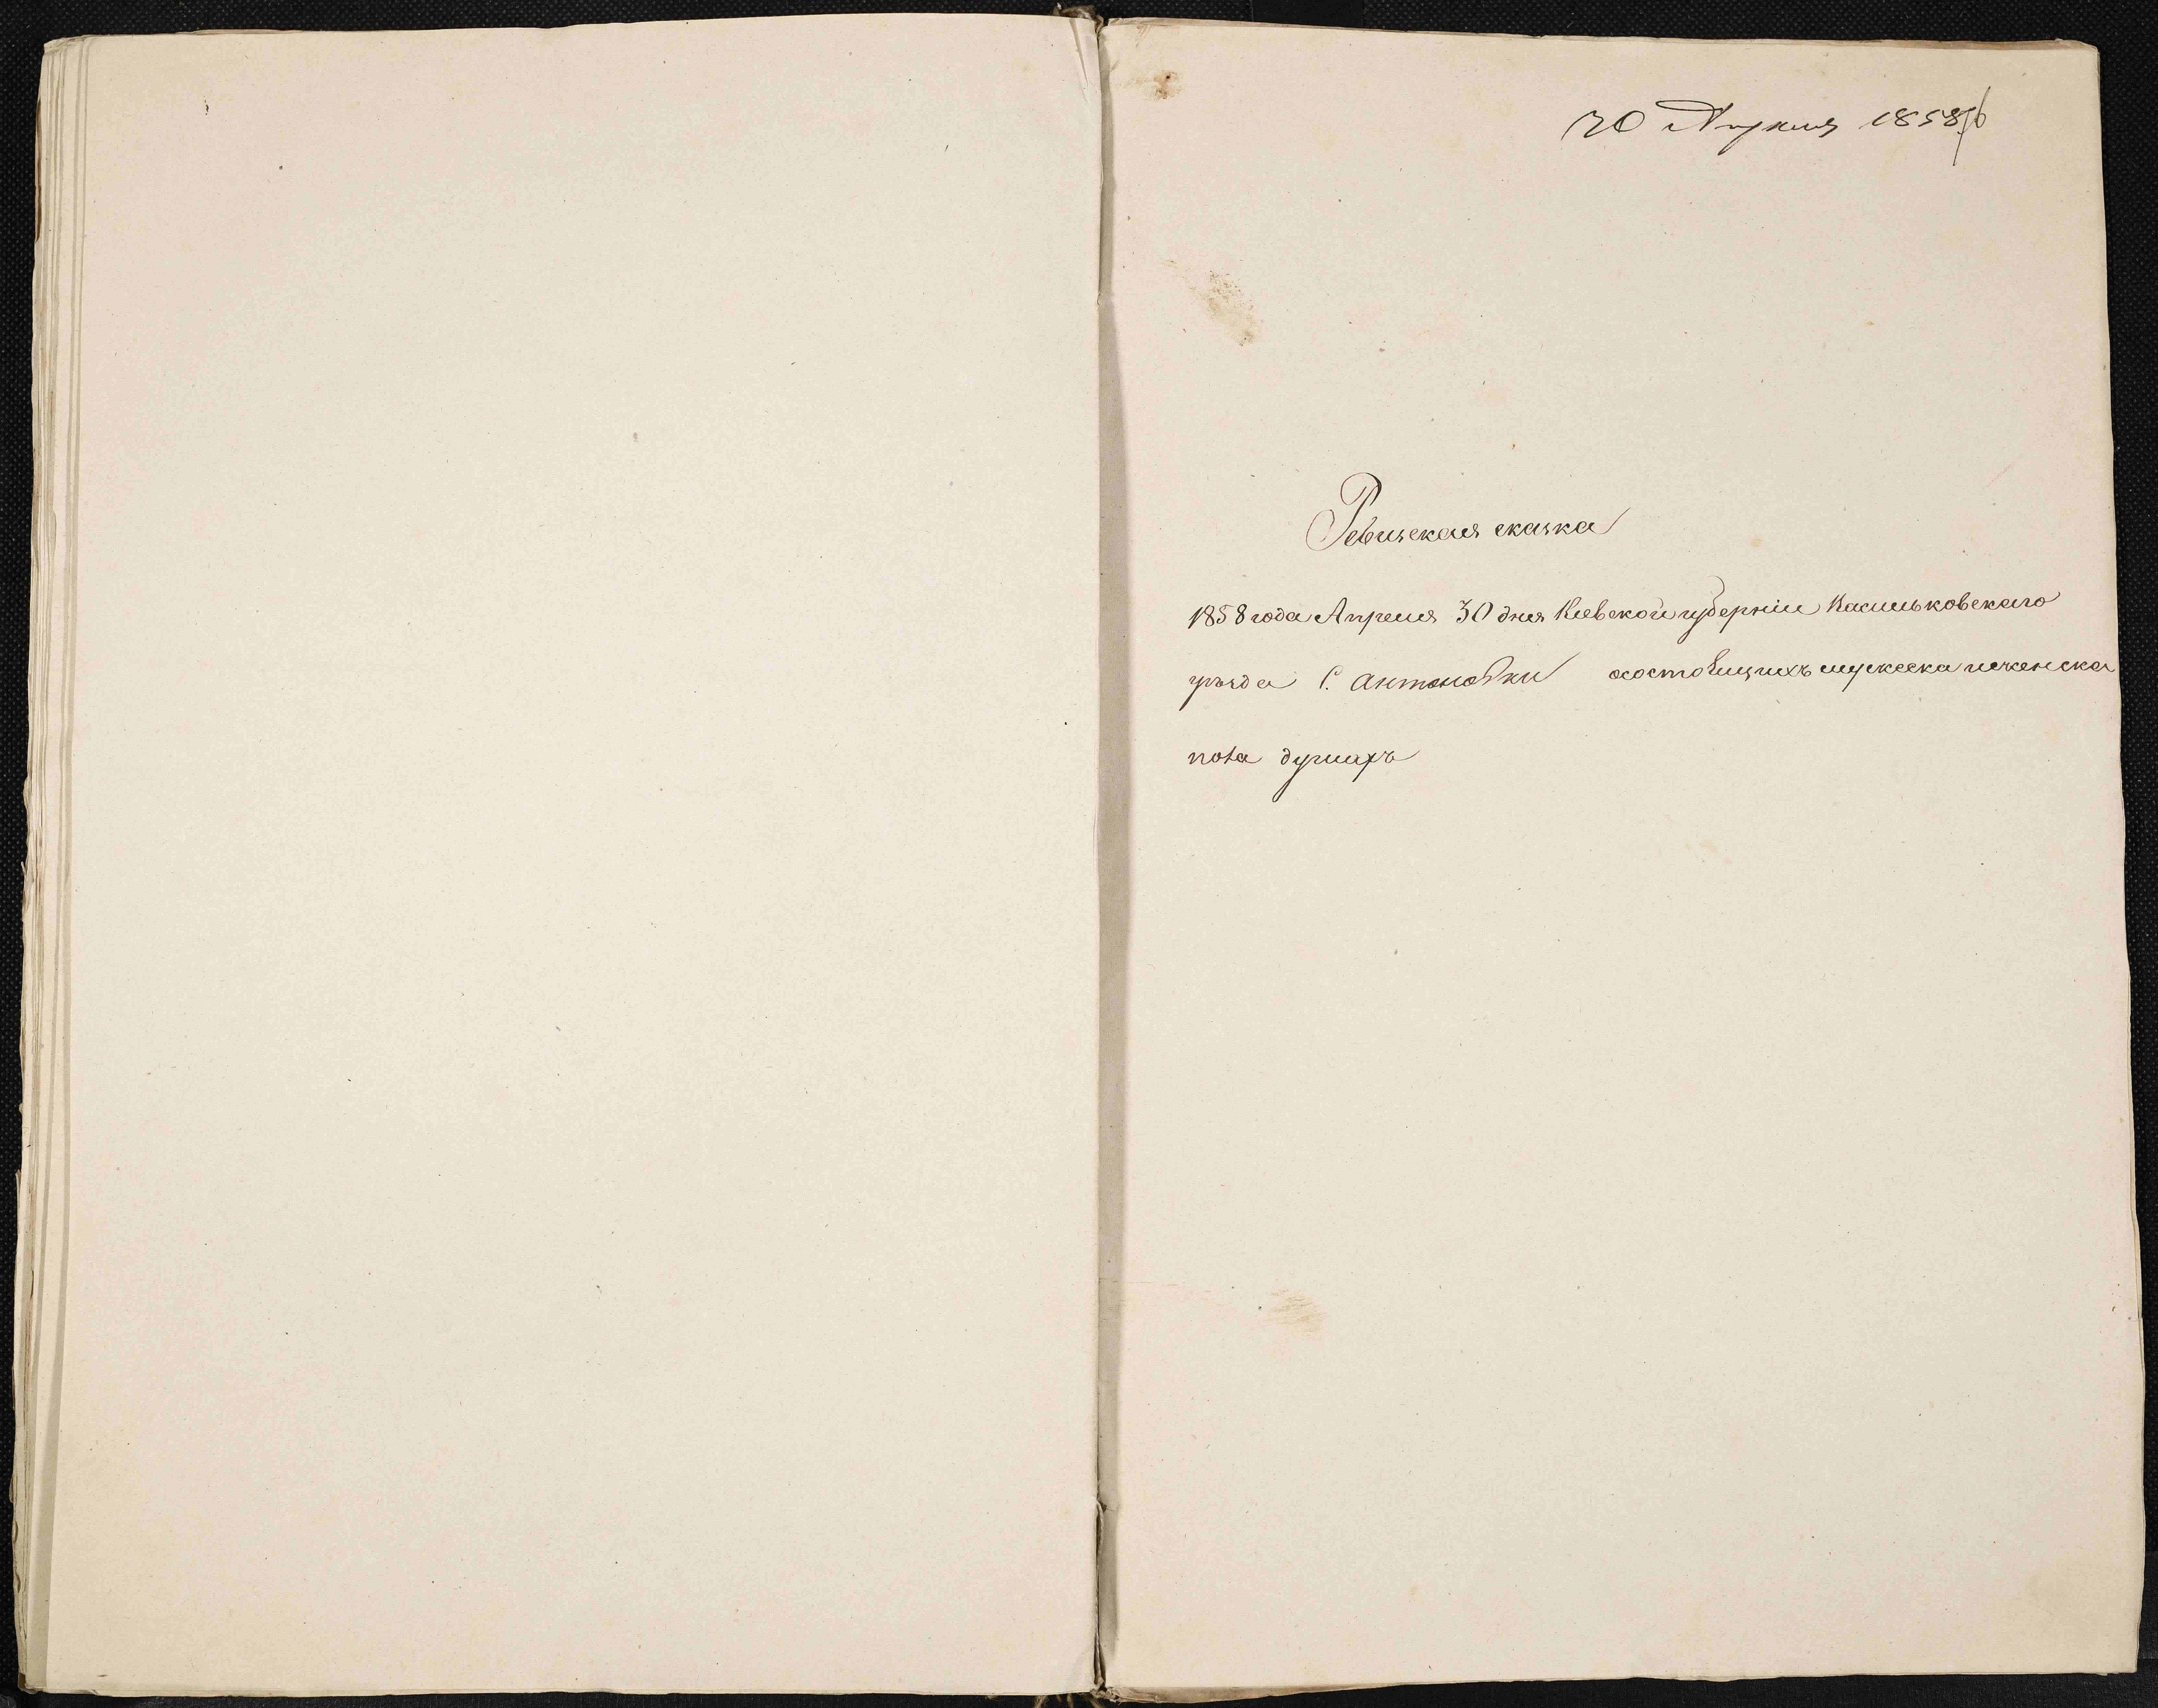 30 Апреля 1858
Ревизская сказка
1858 года Апреля 30 дня Киевской губернии Васильковскаго
уѣзда С. Антоновки состоящихъ мужеска и женска
пола душахъ